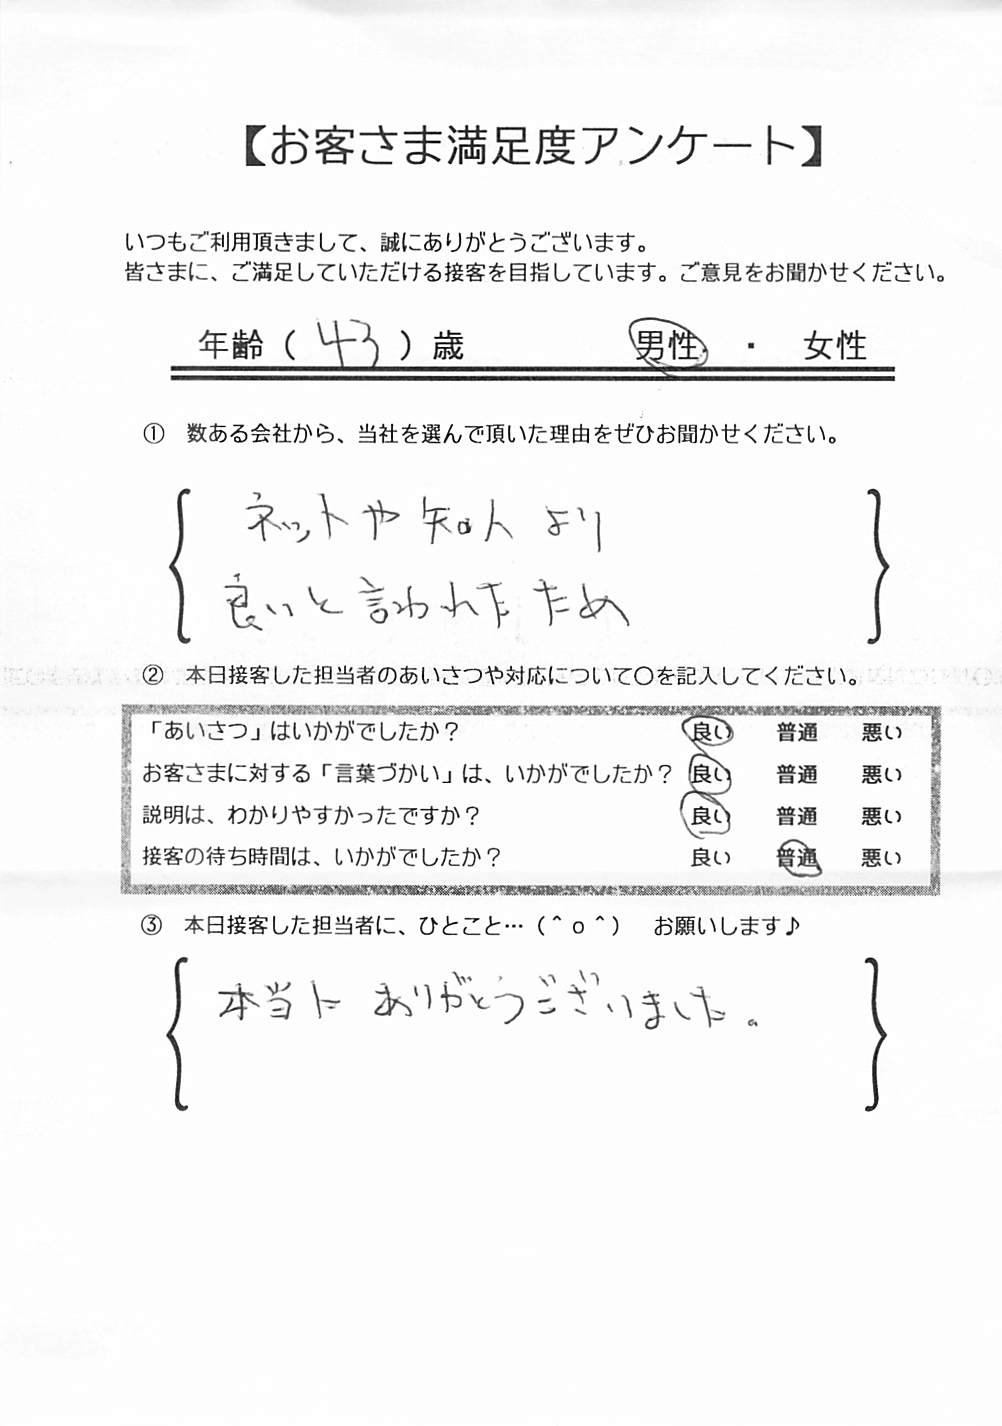 【お客さま満足度アンケート】
いつもご利用頂きまして、誠にありがとうございます。
皆さまに、ご満足していただける接客を目指しています。ご意見をお聞かせください。
年齢（43）歳 男性 ・ 女性
① 数ある会社から、当社を選んで頂いた理由をぜひお聞かせください。
ネットや知人より
良いと言われたため
② 本日接客した担当者のあいさつや対応について〇を記入してください。
「あいさつ」はいかがでしたか？ 良い 普通 悪い
お客さまに対する「言葉づかい」は、いかがでしたか？ 良い 普通 悪い
説明は、わかりやすかったですか？ 良い 普通 悪い
接客の待ち時間は、いかがでしたか？ 良い 普通 悪い
③ 本日接客した担当者に、ひとこと…（＾ｏ＾） お願いします♪
本当に ありがとうございました。